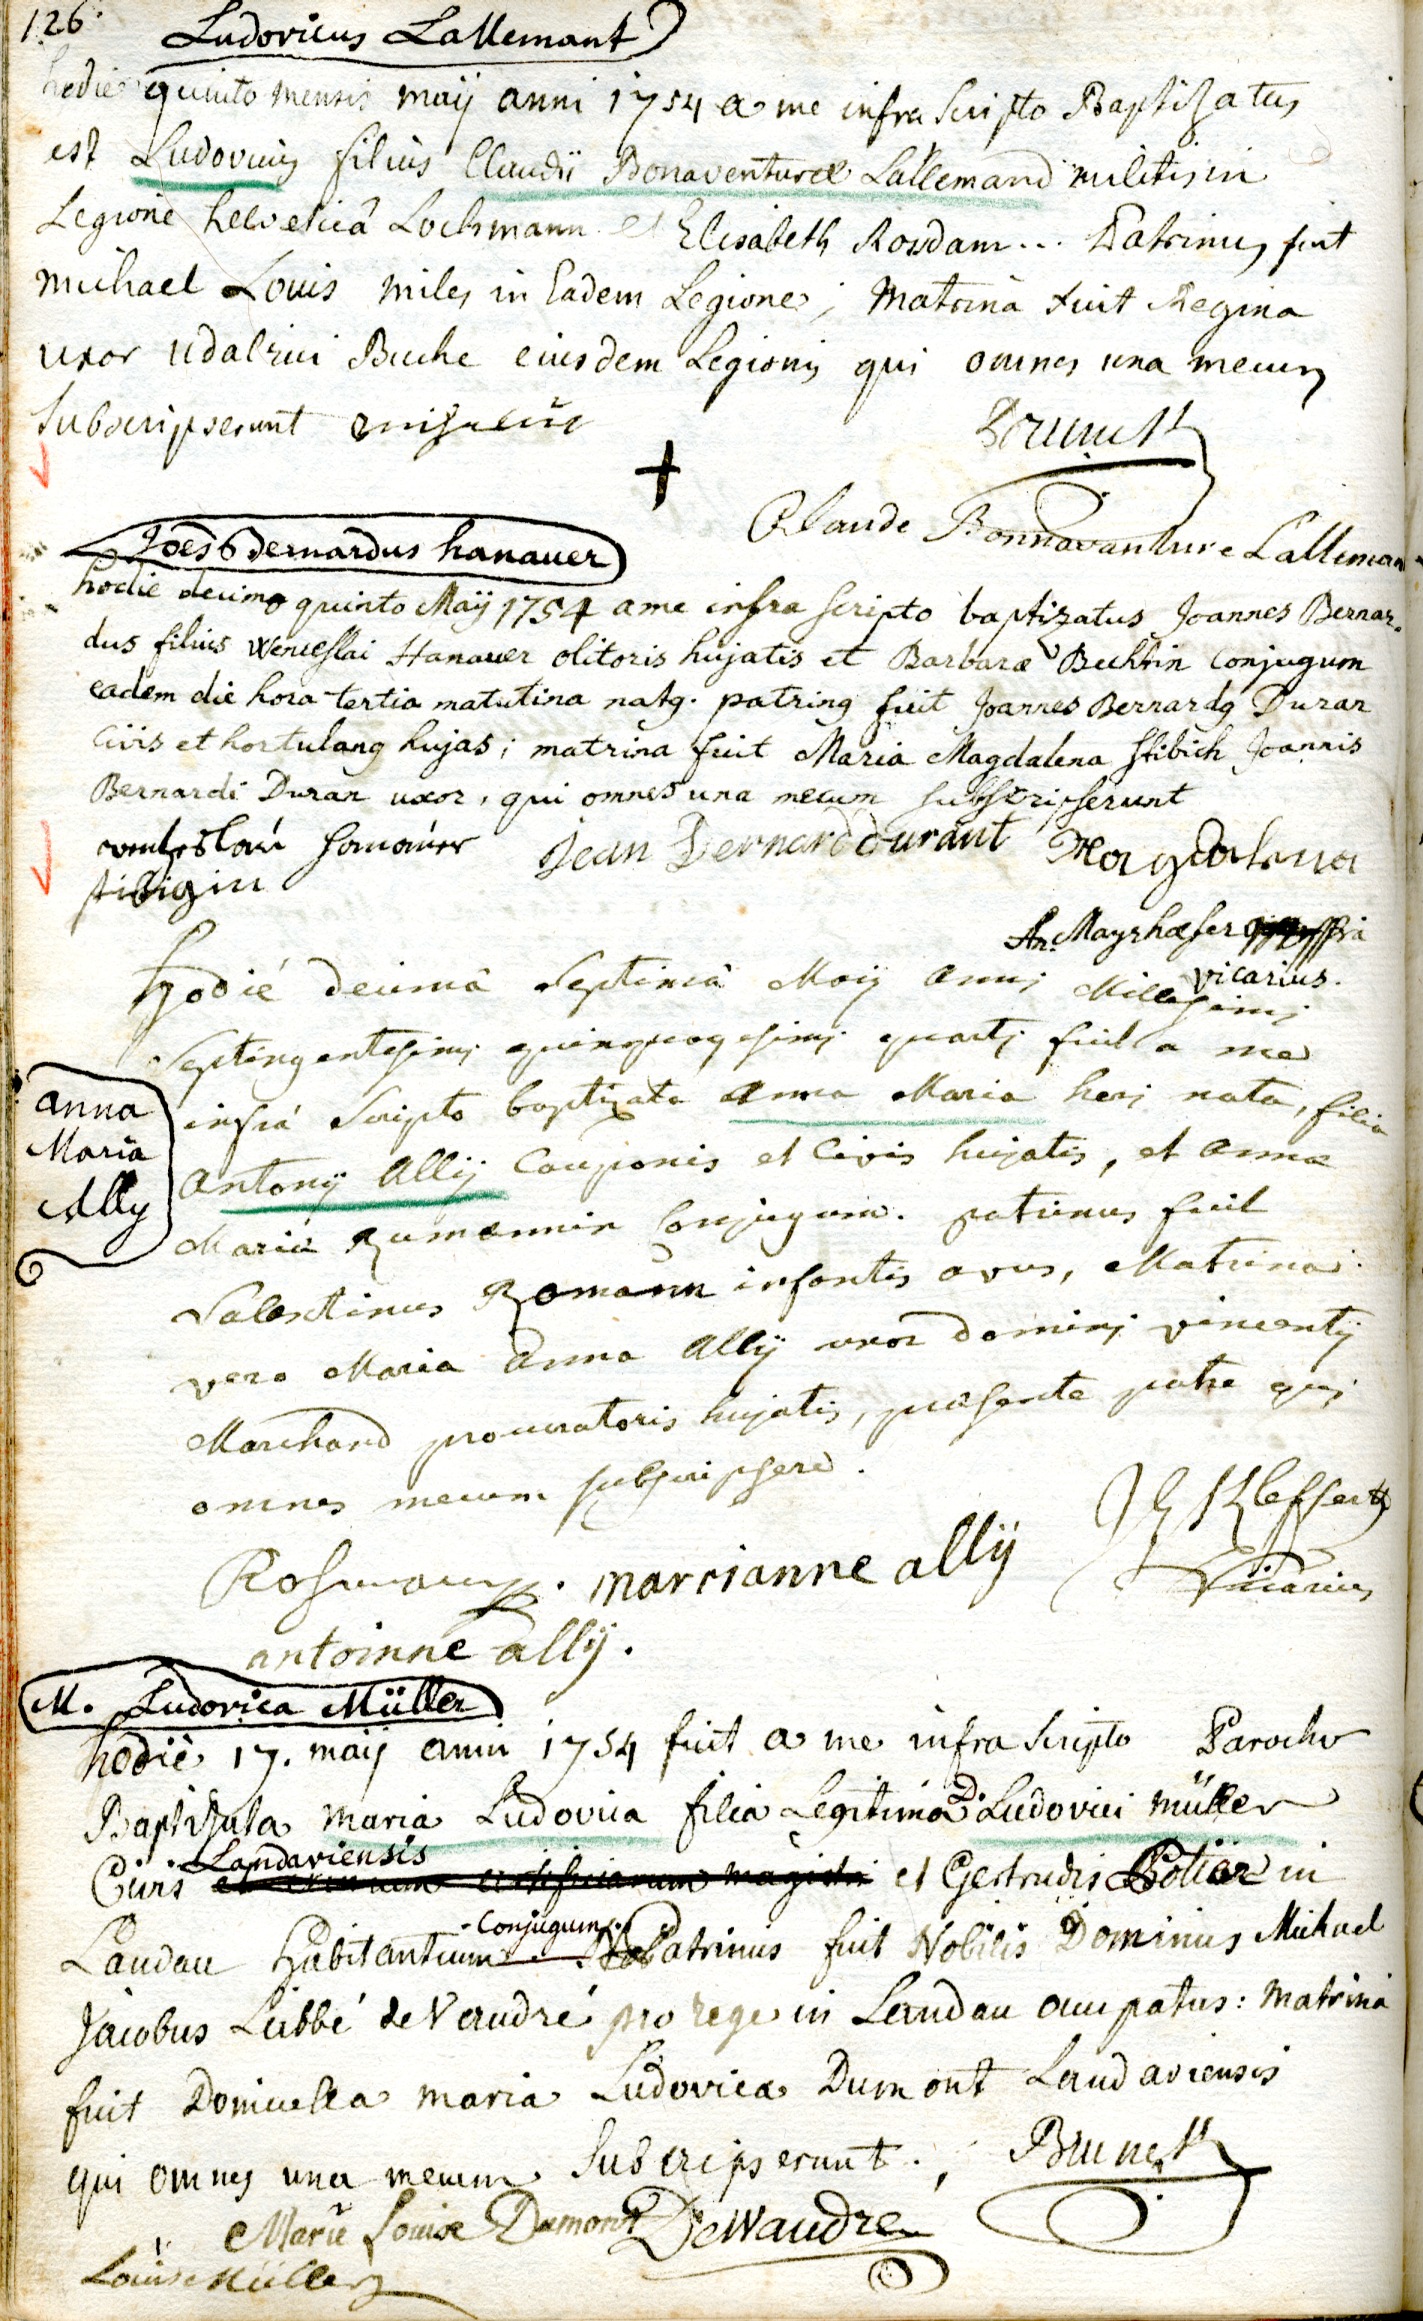 126.
Ludovicus Lallemant
hodie quinto mensis maij anni 1754 a me infra Scripto Baptizatus
est Ludovicus filius Claudii Bonaventuræ Lallemand militis in
Legione helveticâ Lochmann et Elisabeth Rosdam... Patrinus fuit
michael Louis miles in Eadem Legione; Matrina fuit Regina
uxor udalrici Buche eiusdem Legionis qui omnes una mecum
Subscripserunt
Brunck
+
Claude Bonnavanture Lalleman
Joes Bernardus hanauer
hodie decimo quinto Maÿ 1754 a me infra scripto baptizatus Joannes Bernar-
dus filius Wenceslai Hanauer olitoris hujatis et Barbaræ Bechhin Conjugum
eadem die hora tertia matutina natg. patring fuit Joannes Bernardg Duran
Civis et hortulang hujas; matrina fuit Maria Magdalena Stibich Joannis
Bernardi Duran uxor, qui omnes una mecum subscripserunt
Jean Bernard durant Magdalena
stibigin
An. Mayrhæfer
vicarius.
Hodié decimâ Septimâ Maij anni Millesimi
Septingentesimi quinquagesimi quarti fuit a me
infrá Scripto baptizata Anna Maria heri nata, filia
Antonij Allij Cauponis et Civis hujatis, et Anna
Mariæ Rumannin Conjugum. patrinus fuit
Valentinus Romann infantis avus, Matrina
vero Maria Anna Allij uxor domini vincentij
Marchand procuratoris hujatis, præsente patre qui
omnes mecum subscripsere.
anna
Maria
Ally
marianne allÿ
Vicarius
antoinne allÿ.
M. Ludovica Müller
hodiè 17. maij anni 1754 fuit a me infra Scripto Parocho
Baptizata maria Ludovica filia Legitima D. Ludovici müller
Civis Landaviensis et Gertrudis Potier in
Landau habitantium Conjugum. Patrinus fuit Nobilis Dominus Michael
Jacobus Labbé de Vaudré pro rege in Landau occupatus: matrina
fuit Domicella maria Ludovica Dumont Landaviensis
qui omnes una mecum Subscripserunt.
Brunck
Marie Louise Dumont DeWaudre
Louis Müller